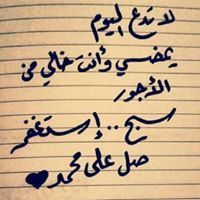 لا تدع اليوم
يمضي وأنت خالي من
الأجور
سبح .. إستغفر
صل على محمد ♥